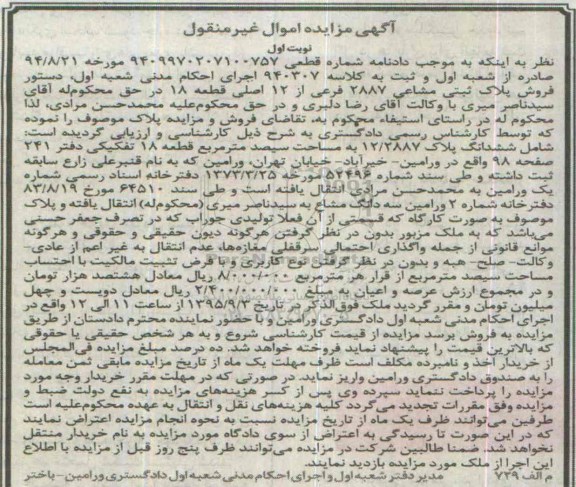 آگهی مزایده اموال غیر منقول
نوبت اول
نظر به اینکه به موجب دادنامه شماره قطعی ۹۴۰۹۹۷۰۲۰۷۱۰۰۷۵۷ مورخه ۹۴/۸/۲۱
صادره از شعبه اول و ثبت به کلاسه ۹۴۰۳۰۷ اجرای احکام مدنی شعبه اول، دستور
فروش پلاک ثبتی مشاعی ۲۸۸۷ فرعی از ۱۲ اصلی قطعه ۱۸ در حق محکوم‌له آقای
سیدناصر میری با وکالت آقای رضا دلبری و در حق محکوم‌علیه محمدحسن مرادی، لذا
محکوم له در راستای استیفاء محکوم به، تقاضای فروش و مزایده پلاک موصوف را نموده
که توسط کارشناس رسمی دادگستری به شرح ذیل کارشناسی و ارزیابی گردیده است:
شامل ششدانگ پلاک ۱۲/۲۸۸۷ به مساحت سیصد مترمربع قطعه ۱۸ تفکیکی دفتر ۲۴۱
صفحه ۹۸ واقع در ورامین- خیرآباد- خیابان تهران، ورامین که به نام قنبرعلی زارع سابقه
ثبت داشته و طی سند شماره ۵۳۴۹۶ مورخه ۱۳۷۳/۳/۲۵ دفترخانه اسناد رسمی شماره
یک ورامین به محمدحسن مرادی انتقال یافته است و طی سند ۶۴۵۱۰ مورخ ۸۳/۸/۱۹
دفترخانه شماره ۲ ورامین سه دانگ مشاع به سیدناصر میری (محکوم‌له) انتقال یافته و پلاک
موصوف به صورت کارگاه که قسمتی از آن فعلا تولیدی جوراب که در تصرف جعفر حسنی
می‌باشد که به ملک مزبور بدون در نظر گرفتن هرگونه دیون حقیقی و حقوقی و هرگونه
موانع قانونی از جمله واگذاری احتمالی سرقفلی مغازه‌ها، عدم انتقال به غیر اعم از عادی-
وکالت- صلح- هبه و بدون در نظر گرفتن نوع کاربری و با فرض تثبیت مالکیت با احتساب
مساحت سیصد مترمربع از قرار هر مترمربع ۸/۰۰۰/۰۰۰ ریال معادل هشتصد هزار تومان
و در مجموع ارزش عرصه و اعیان به مبلغ ۲/۴۰۰/۰۰۰/۰۰۰ ریال معادل دویست و چهل
میلیون تومان و مقرر گردید ملک فوق‌الذکر در تاریخ ۱۳۹۵/۹/۳ از ساعت ۱۱ الی ۱۲ واقع در
اجرای احکام مدنی شعبه اول دادگستری ورامین و با حضور نماینده محترم دادستان از طریق
مزایده به فروش برسد مزایده از قیمت کارشناسی شروع و به هر شخص حقیقی یا حقوقی
که بالاترین قیمت را پیشنهاد نماید فروخته خواهد شد. ده درصد مبلغ مزایده فی‌المجلس
از خریدار اخذ و نامبرده مکلف است ظرف مهلت یک ماه از تاریخ مزایده مابقی ثمن معامله
را به صندوق دادگستری ورامین واریز نماید. در صورتی که در مهلت مقرر خریدار وجه مورد
مزایده را پرداخت ننماید سپرده وی پس از کسر هزینه‌های مزایده به نفع دولت ضبط و
مزایده وفق مقررات تجدید می‌گردد کلیه هزینه‌های نقل و انتقال به عهده محکوم‌علیه است
طرفین می‌توانند ظرف یک ماه از تاریخ مزایده نسبت به نحوه انجام مزایده اعتراض نمایند
که در این صورت تا رسیدگی به اعتراض از سوی دادگاه مورد مزایده به نام خریدار منتقل
نخواهد شد، ضمنا طالبین شرکت در مزایده می‌توانند ظرف پنج روز قبل از مزایده با اطلاع
این اجرا از ملک مورد مزایده بازدید نمایند.
م الف ۷۲۹ مدیر دفتر شعبه اول و اجرای احکام مدنی شعبه اول دادگستری ورامین- باختر